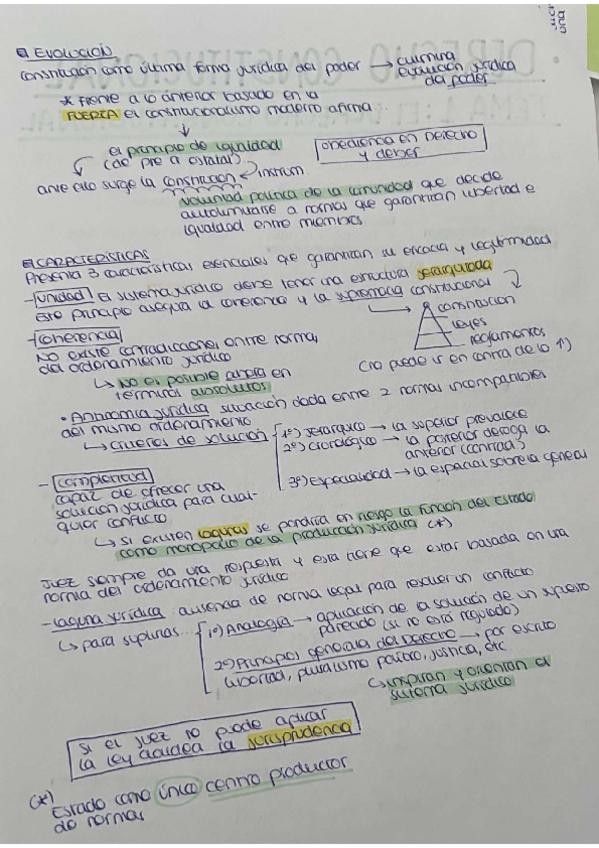 EVOLUCIÓN
Constitución como última forma jurídica del poder → culmina
evolución jurídica
del poder
* Frente a lo anterior basado en la
FUERZA el constitucionalismo moderno afirma
el principio de igualdad
(de pre a estatal)
obediencia en Derecho
y deber
ante ello surge la constitución ← instrum.
voluntad política de la comunidad que decide
autolimitarse a normas que garantizan libertad e
igualdad entre miembros
CARACTERÍSTICAS
Presenta 3 características esenciales que garantizan su eficacia y legitimidad
- Unidad El sistema jurídico debe tener una estructura jerarquizada
Este principio asegura la coherencia y la supremacía constitucional
→ constitución
leyes
reglamentos
(no puede ir en contra de lo ↑)
- Coherencia
No existe contradicciones entre normas
del ordenamiento jurídico
↳ No es posible ahora en
términos absolutos
• Antinomia jurídica situación dada entre 2 normas incompatibles
del mismo ordenamiento
↳ criterios de solución
1º) Jerárquico → la superior prevalece
2º) Cronológico → la posterior deroga la
anterior (contrad.)
3º) Especialidad → la especial sobre la general
- Complenitud
capaz de ofrecer una
solución jurídica para cual-
quier conflicto
↳ si existen lagunas se pondría en riesgo la función del Estado
como monopolio de la producción jurídica (*)
Juez siempre da una respuesta y esta tiene que estar basada en una
norma del ordenamiento jurídico
- Laguna jurídica: ausencia de norma legal para resolver un conflicto
↳ para suplirlas...
1º) Analogía → aplicación de la solución de un supuesto
parecido (si no está regulado)
2º) Principios generales del Derecho → por escrito
libertad, pluralismo político, justicia, etc
↳ inspiran y orientan el
sistema jurídico
Si el juez no puede aplicar
la ley la jurisprudencia
(*)
Estado como único centro productor
de normas